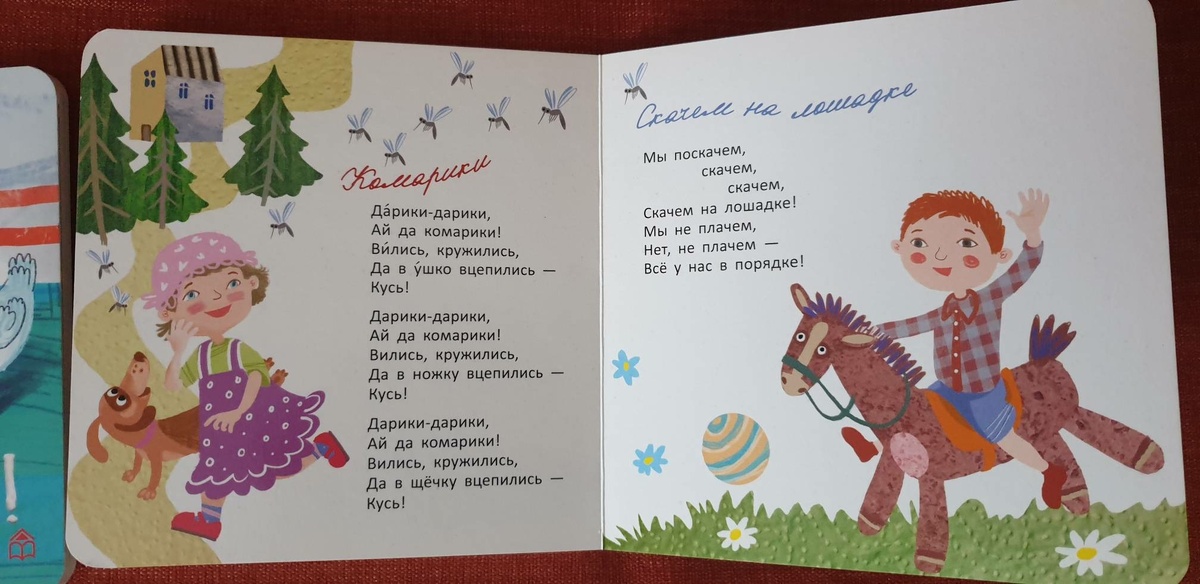 Комарики
Да́рики-дарики,
Ай да комарики!
Ви́лись, кружились,
Да в у́шко вцепились —
Кусь!
Дарики-дарики,
Ай да комарики!
Вились, кружились,
Да в ножку вцепились —
Кусь!
Дарики-дарики,
Ай да комарики!
Вились, кружились,
Да в щёчку вцепились —
Кусь!
Скачем на лошадке
Мы поскачем,
скачем,
скачем,
Скачем на лошадке!
Мы не плачем,
Нет, не плачем —
Всё у нас в порядке!
!